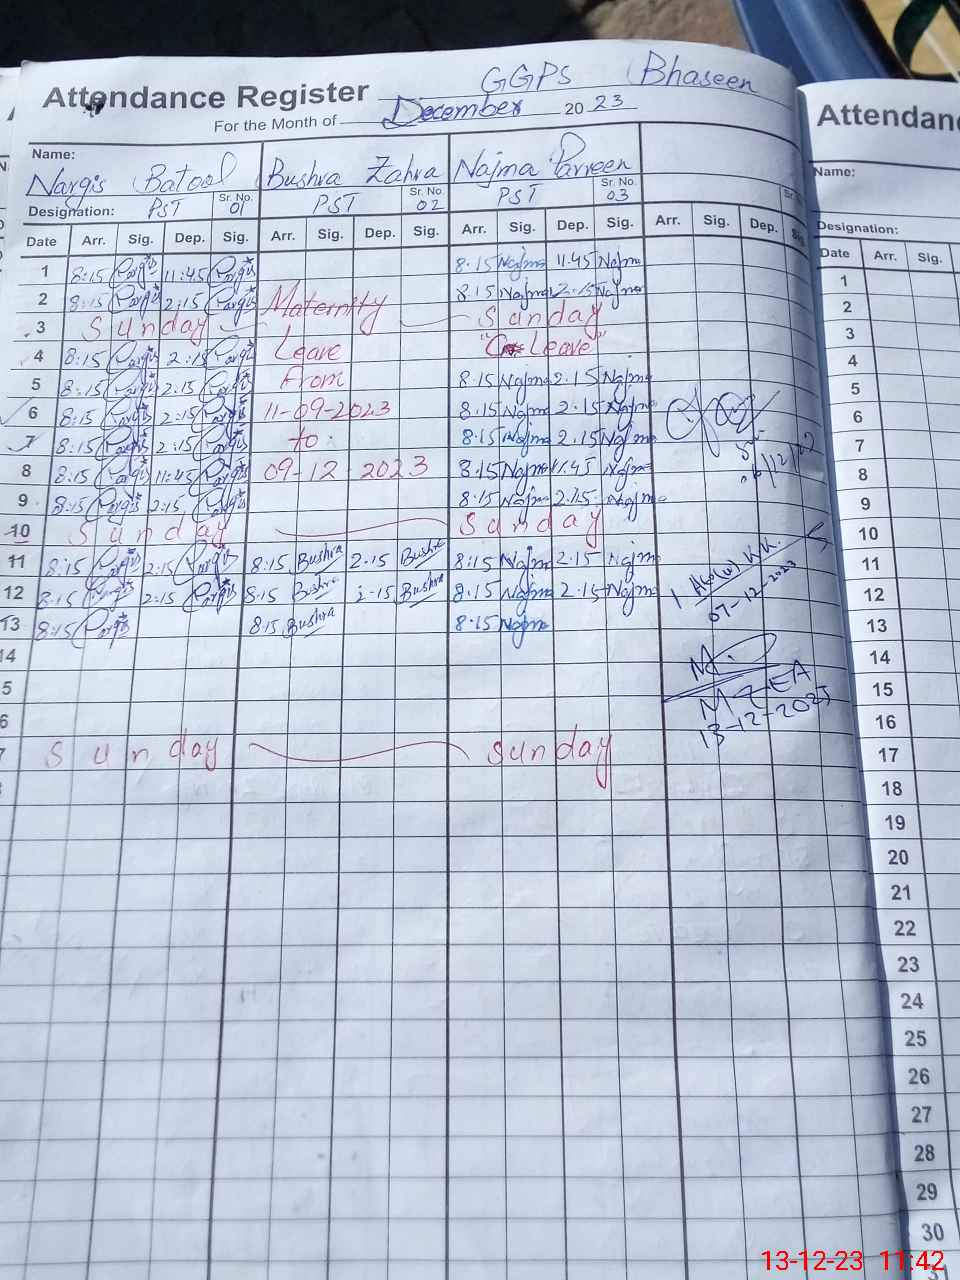 GGPS Bhaseen
Attendance Register
For the Month of December 2023
Name:
Nargis Batool Bushra Zahra Najma Parveen
Designation: PST Sr. No. 01 PST Sr. No. 02 PST Sr. No. 03
Date Arr. Sig. Dep. Sig. Arr. Sig. Dep. Sig. Arr. Sig. Dep. Sig. Arr. Sig. Dep. Sig.
1 8:15 Nargis 11:45 Nargis 8.15 Najma 11.45 Najma
2 8:15 Nargis 2:15 Nargis Maternity 8.15 Najma 2.15 Najma
3 Sunday Sunday
4 8:15 Nargis 2:15 Nargis Leave Leave
5 8:15 Nargis 2:15 Nargis From 8.15 Najma 2.15 Najma
6 8:15 Nargis 2:15 Nargis 11-09-2023 8.15 Najma 2.15 Najma
7 8:15 Nargis 2:15 Nargis to: 8.15 Najma 2.15 Najma
8 8:15 Nargis 11:45 Nargis 09-12-2023 8.15 Najma 11.45 Najma
9 8:15 Nargis 2:15 Nargis 8.15 Najma 2.15 Najma
10 Sunday Sunday
11 8:15 Nargis 2:15 Nargis 8:15 Bushra 2-15 Bushra 8:15 Najma 2-15 Najma
12 8:15 Nargis 2:15 Nargis 8:15 Bushra 2-15 Bushra 8.15 Najma 2.15 Najma
13 8:15 Nargis 8:15 Bushra 8.15 Najma
07-12-2023
14
5
MZEA
6
13-12-2023
7 Sunday Sunday
Attendan
Name:
Designation:
Date Arr. Sig.
1
2
3
4
5
6
7
8
9
10
11
12
13
14
15
16
17
18
19
20
21
22
23
24
25
26
27
28
29
30
31
13-12-23 11:42